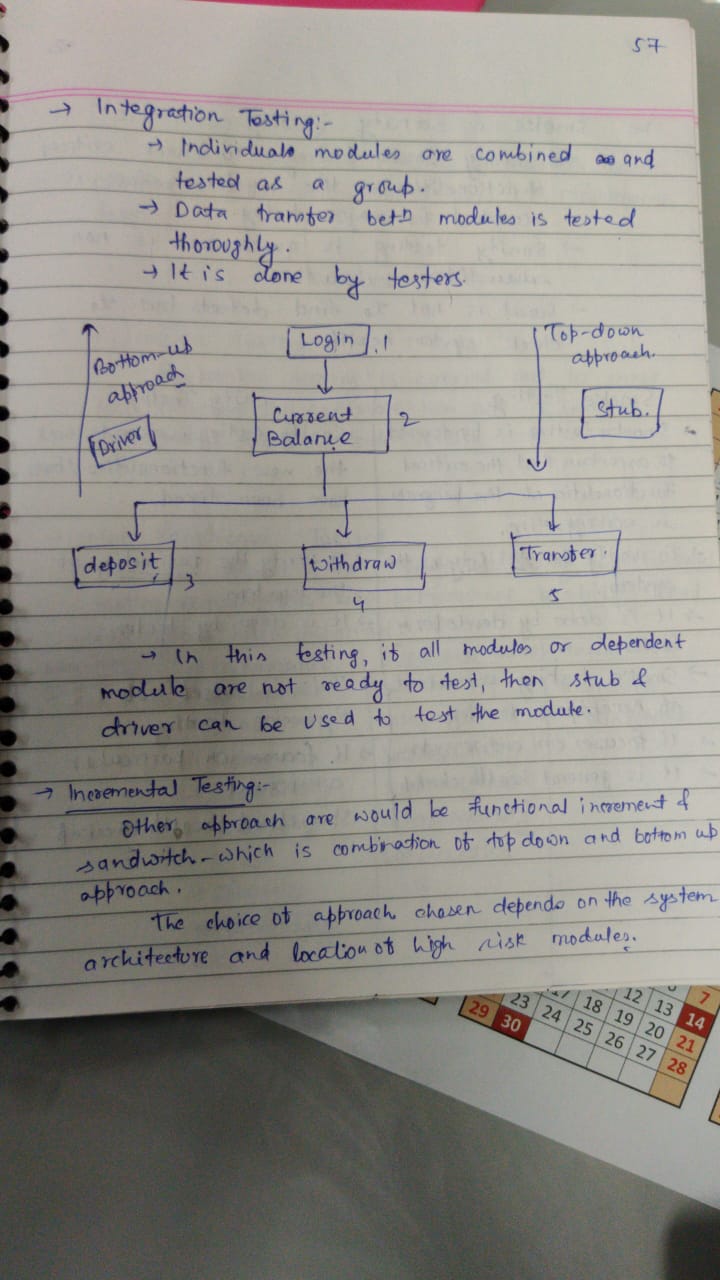 57
→ Integration Testing:-
→ Individuals modules are combined and
tested as a group.
→ Data transfer betn modules is tested
thoroughly.
→ It is done by testers.
Bottom-up
approach
Driver
Login .1
Current
Balance 2
Top-down
approach.
Stub.
deposit 3
Withdraw
4
Transfer.
5
→ In this testing, if all modules or dependent
module are not ready to test, then stub &
driver can be used to test the module.
→ Incremental Testing:-
Other approach are would be functional increment &
sandwitch - which is combination of top down and bottom up
approach.
The choice of approach chosen depends on the system
architecture and location of high risk modules.
7
12 13 14
17 18 19 20 21
23 24 25 26 27 28
29 30